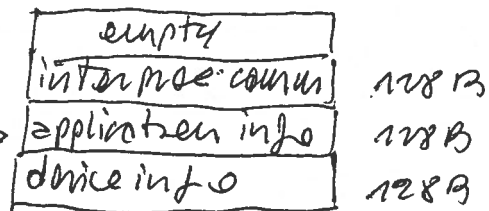 empty
interproc. comm 128 B
application info 128 B
device info 128 B